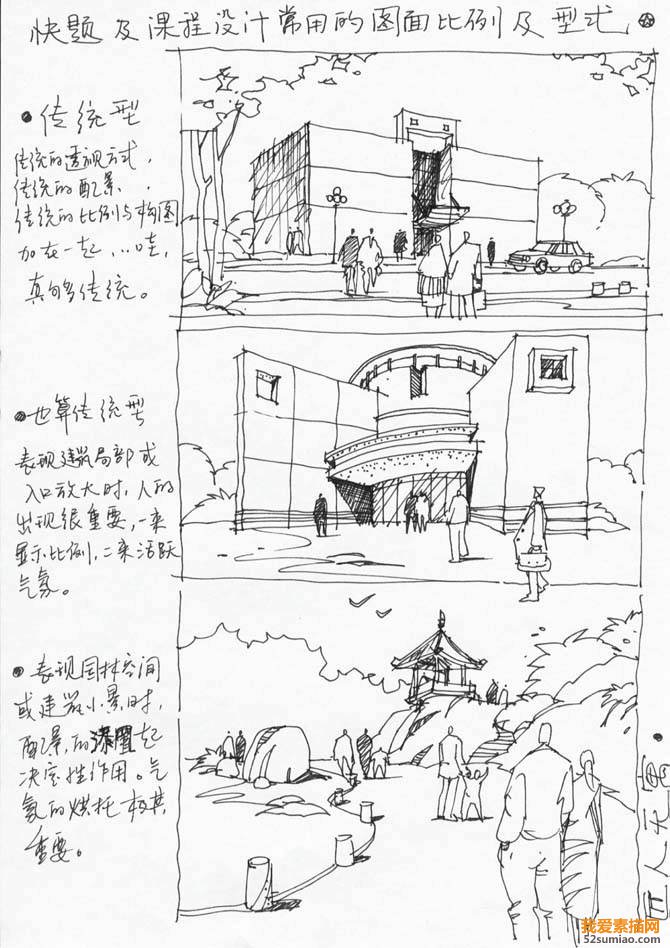 快题及课程设计常用的图面比例及型式
传统型
传统的透视方式，
传统的配景，
传统的比例与构图
加在一起，…哇，
真够传统。
也算传统型
表现建筑局部或
入口放大时，人的
出现很重要，一来
显示比例，二来活跃
气氛。
表现园林空间
或建筑小景时，
配景的起
决定性作用。气
氛的烘托极其
重要。
我爱素描网
52sumiao.com